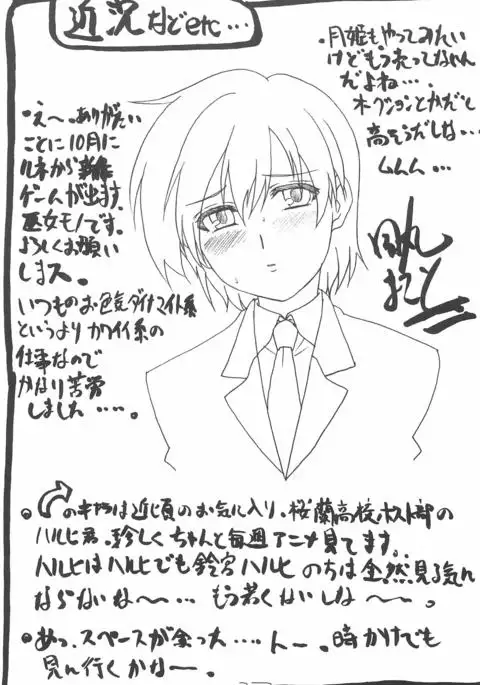 近況などetc…
・え〜。ありがたい
ことに10月に
ルネから新作
ゲームが出ます。
巫女モノです。
よろしくお願い
しまス。
いつものお色気ダイナマイト系
というよりカワイイ系の
仕事なので
かなり苦労
しました……。
・月姫もやってみたい
けどもう売ってないん
だよね…。
オークションとかだと
高そうだしな…
ムムム…
のキャラは近頃のお気に入り。桜蘭高校ホスト部の
ハルヒ君。珍しくちゃんと毎週アニメ見てます。
ハルヒはハルヒでも鈴宮ハルヒのちは全然見る気に
ならないな〜…もう若くないしな〜。
・あっ、スペースが余った…んー。時かけでも
見に行くかなー。